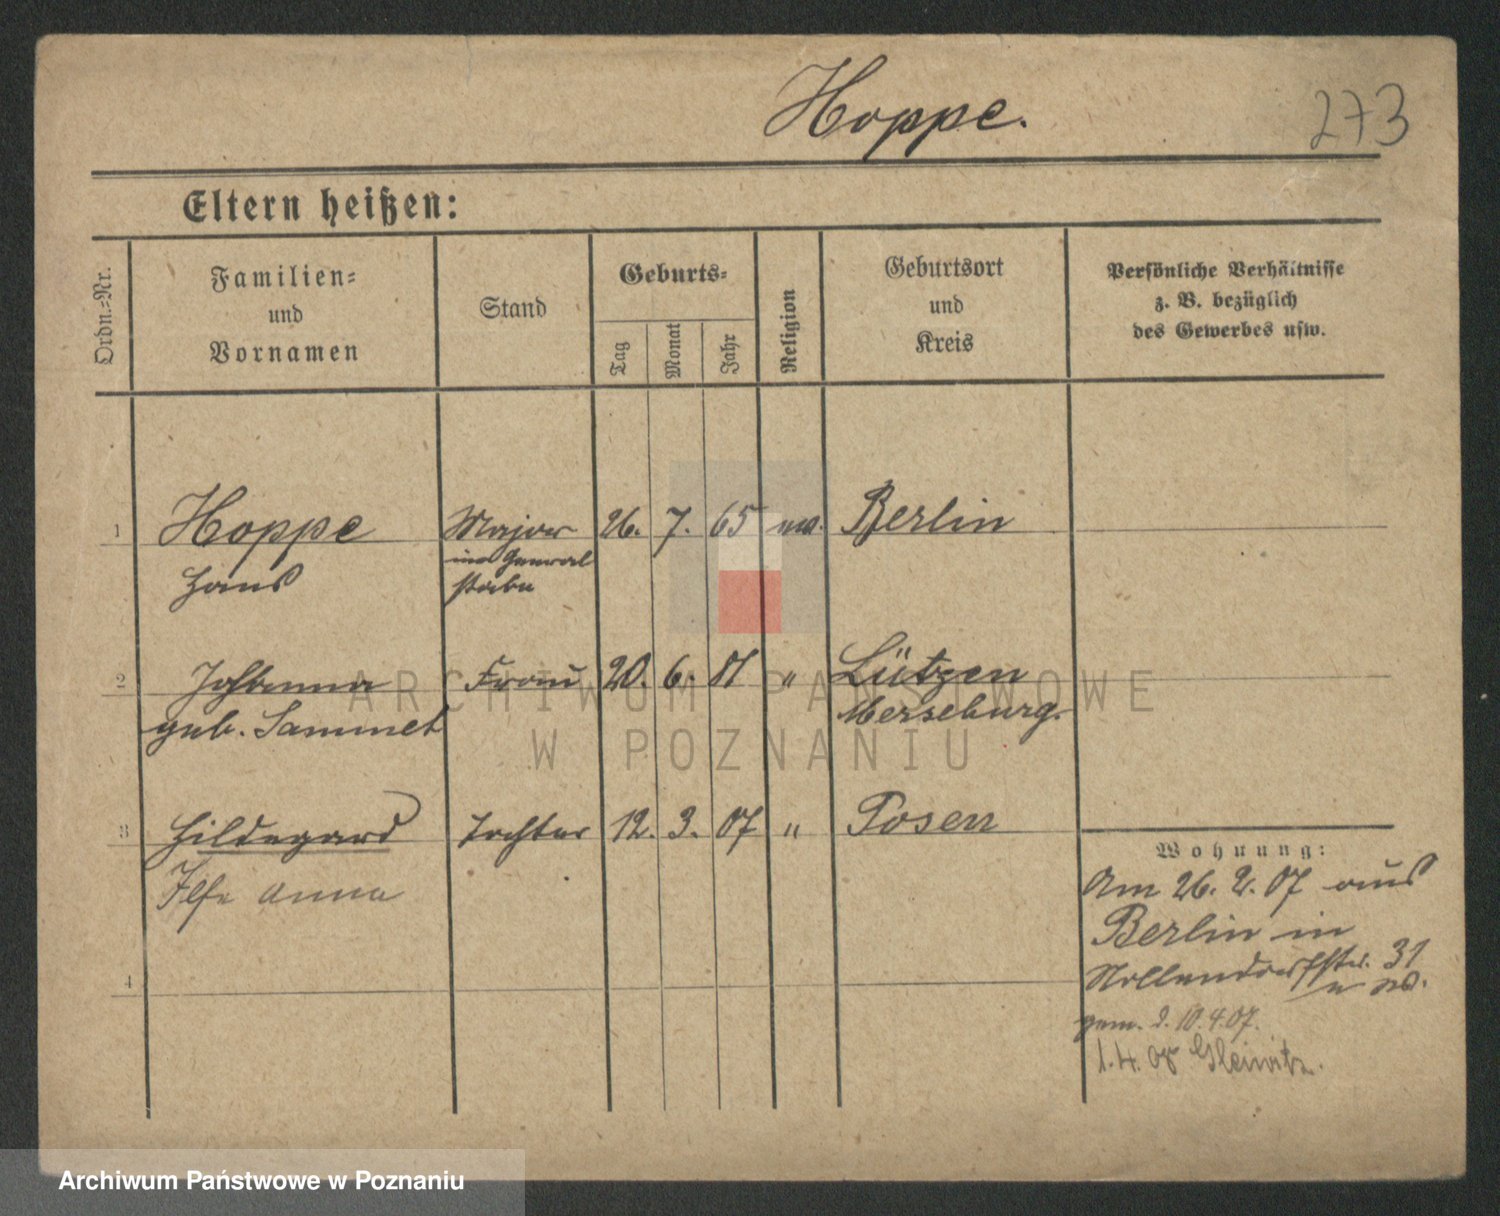 Hoppe.
273
Eltern heißen:
Ordn.=Nr.
Familien=
und
Vornamen
Stand
Geburts=
Tag
Monat
Jahr
Religion
Geburtsort
und
Kreis
Persönliche Verhältnisse
z. B. bezüglich
des Gewerbes usw.
1 Hoppe Major 26. 7. 65 ev. Berlin
im General
Hans stabe
2 Johanna Frau 20. 6. 81 " Lützen
geb. Sammet Merseburg.
3 Hildegard Tochter 12. 3. 07 " Posen
Ilse Anna
4
Wohnung:
Am 26. 2. 07 aus
Berlin in
Nollendorfstr. 31
gem. d. 10.4.07.
1.4.08 Gleiwitz.
ARCHIWUM PAŃSTWOWE
W POZNANIU
Archiwum Państwowe w Poznaniu